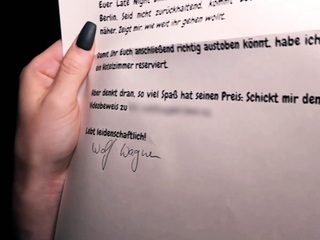 Euer Late Night
Berlin. Seid nicht zurückhaltend, kommt
näher. Zeigt mir, wie weit ihr gehen wollt.
Damit ihr Euch anschließend richtig austoben könnt, habe ich
ein Hotelzimmer reserviert.
Aber denkt dran, so viel Spaß hat seinen Preis: Schickt mir den
Videobeweis zu
Lebt leidenschaftlich!
Wolf Wagner